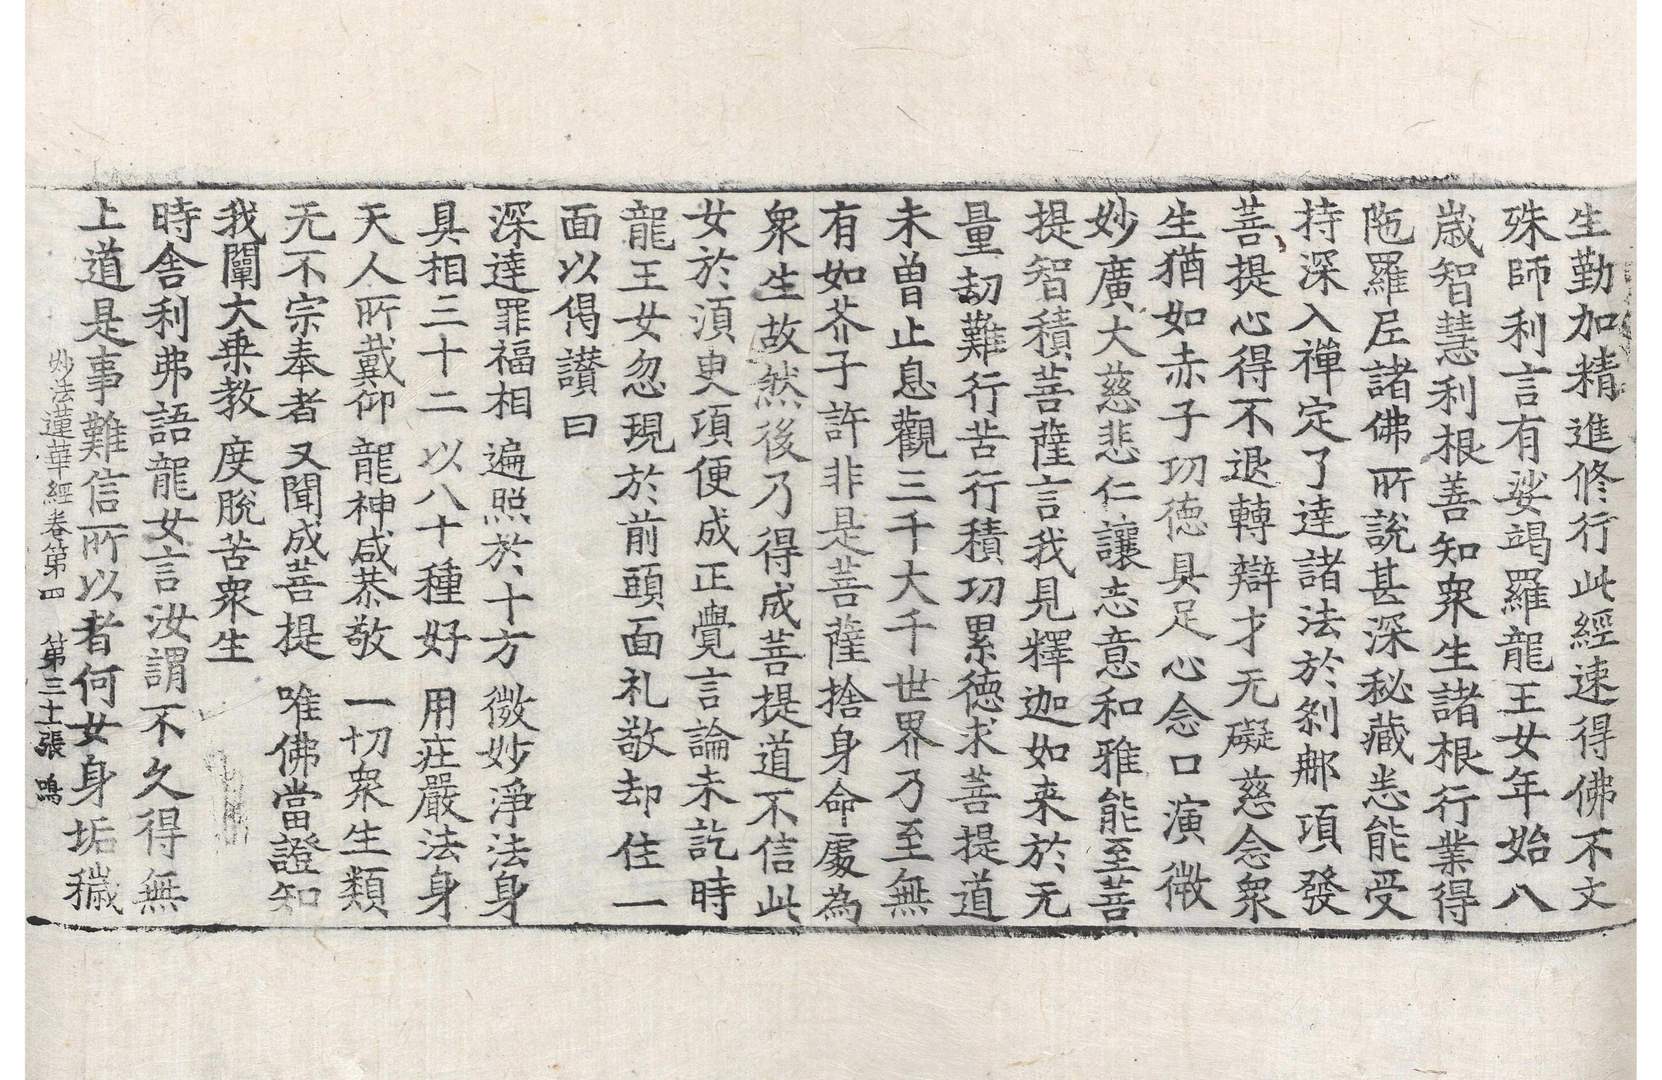 生勤加精進修行此經速得佛不文
殊師利言有娑竭羅龍王女年始八
歲智慧利根善知衆生諸根行業得
陁羅尼諸佛所說甚深秘藏悉能受
持深入禪定了達諸法於剎那頃發
菩提心得不退轉辯才无礙慈念衆
生猶如赤子功徳具足心念口演微
妙廣大慈悲仁讓志意和雅能至菩
提智積菩薩言我見釋迦如来於无
量劫難行苦行積功累徳求菩提道
未曾止息觀三千大千世界乃至無
有如芥子許非是菩薩捨身命處為
衆生故然後乃得成菩提道不信此
女於須臾頃便成正覺言論未訖時
龍王女忽現於前頭面礼敬却住一
面以偈讃曰
深達罪福相 遍照於十方 微妙淨法身
具相三十二 以八十種好 用莊嚴法身
天人所戴仰 龍神咸恭敬 一切衆生類
无不宗奉者 又聞成菩提 唯佛當證知
我闡大乗教 度脫苦衆生
時舍利弗語龍女言汝謂不久得無
上道是事難信所以者何女身垢穢
妙法蓮華經卷第四 第三十張 鳴